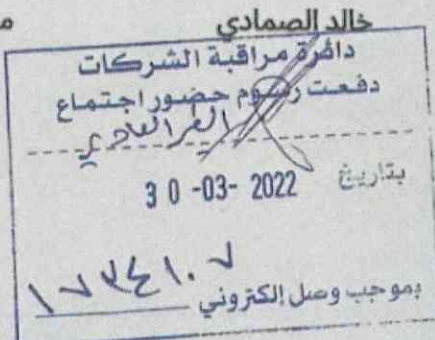 خالد الصمادي
دائرة مراقبة الشركات
دفعت رسوم حضور اجتماع
بتاريخ 30-03-2022
بموجب وصل إلكتروني ١٧٣٤١٠٧